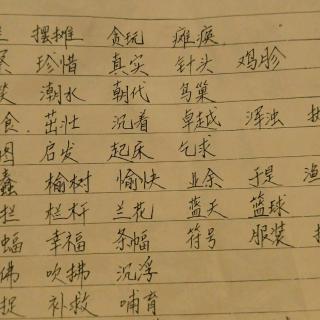 摆摊 贪玩 瘫痪
珍惜 真实 针头 鸡胗
潮水 朝代 鸟巢
食 茁壮 沉着 卓越 浑浊
图 启发 起床 乞求
蠡 榆树 愉快 业余 于是 渔
拦 栏杆 兰花 蓝天 篮球
蝠 幸福 条幅 符号 服装
佛 吹拂 沉浮
捉 补救 哺育